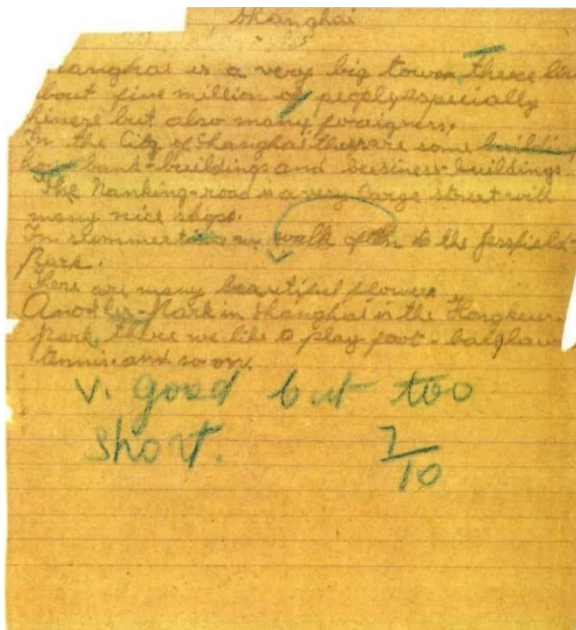 Shanghai
Shanghai is a very big town, there live
about five million of people, especially
Chinese but also many foreigners.
In the City of Shanghai there are some building
bank-buildings and business-buildings
The Nanking-road is a very large street with
many nice shops.
In summer we walk often to the Jessfield-
Park.
There are many beautiful flowers
Another Park in Shanghai is the Hongkew-
park, there we like to play foot-ball,
tennis and so on.
v. good but too
short. 7/10